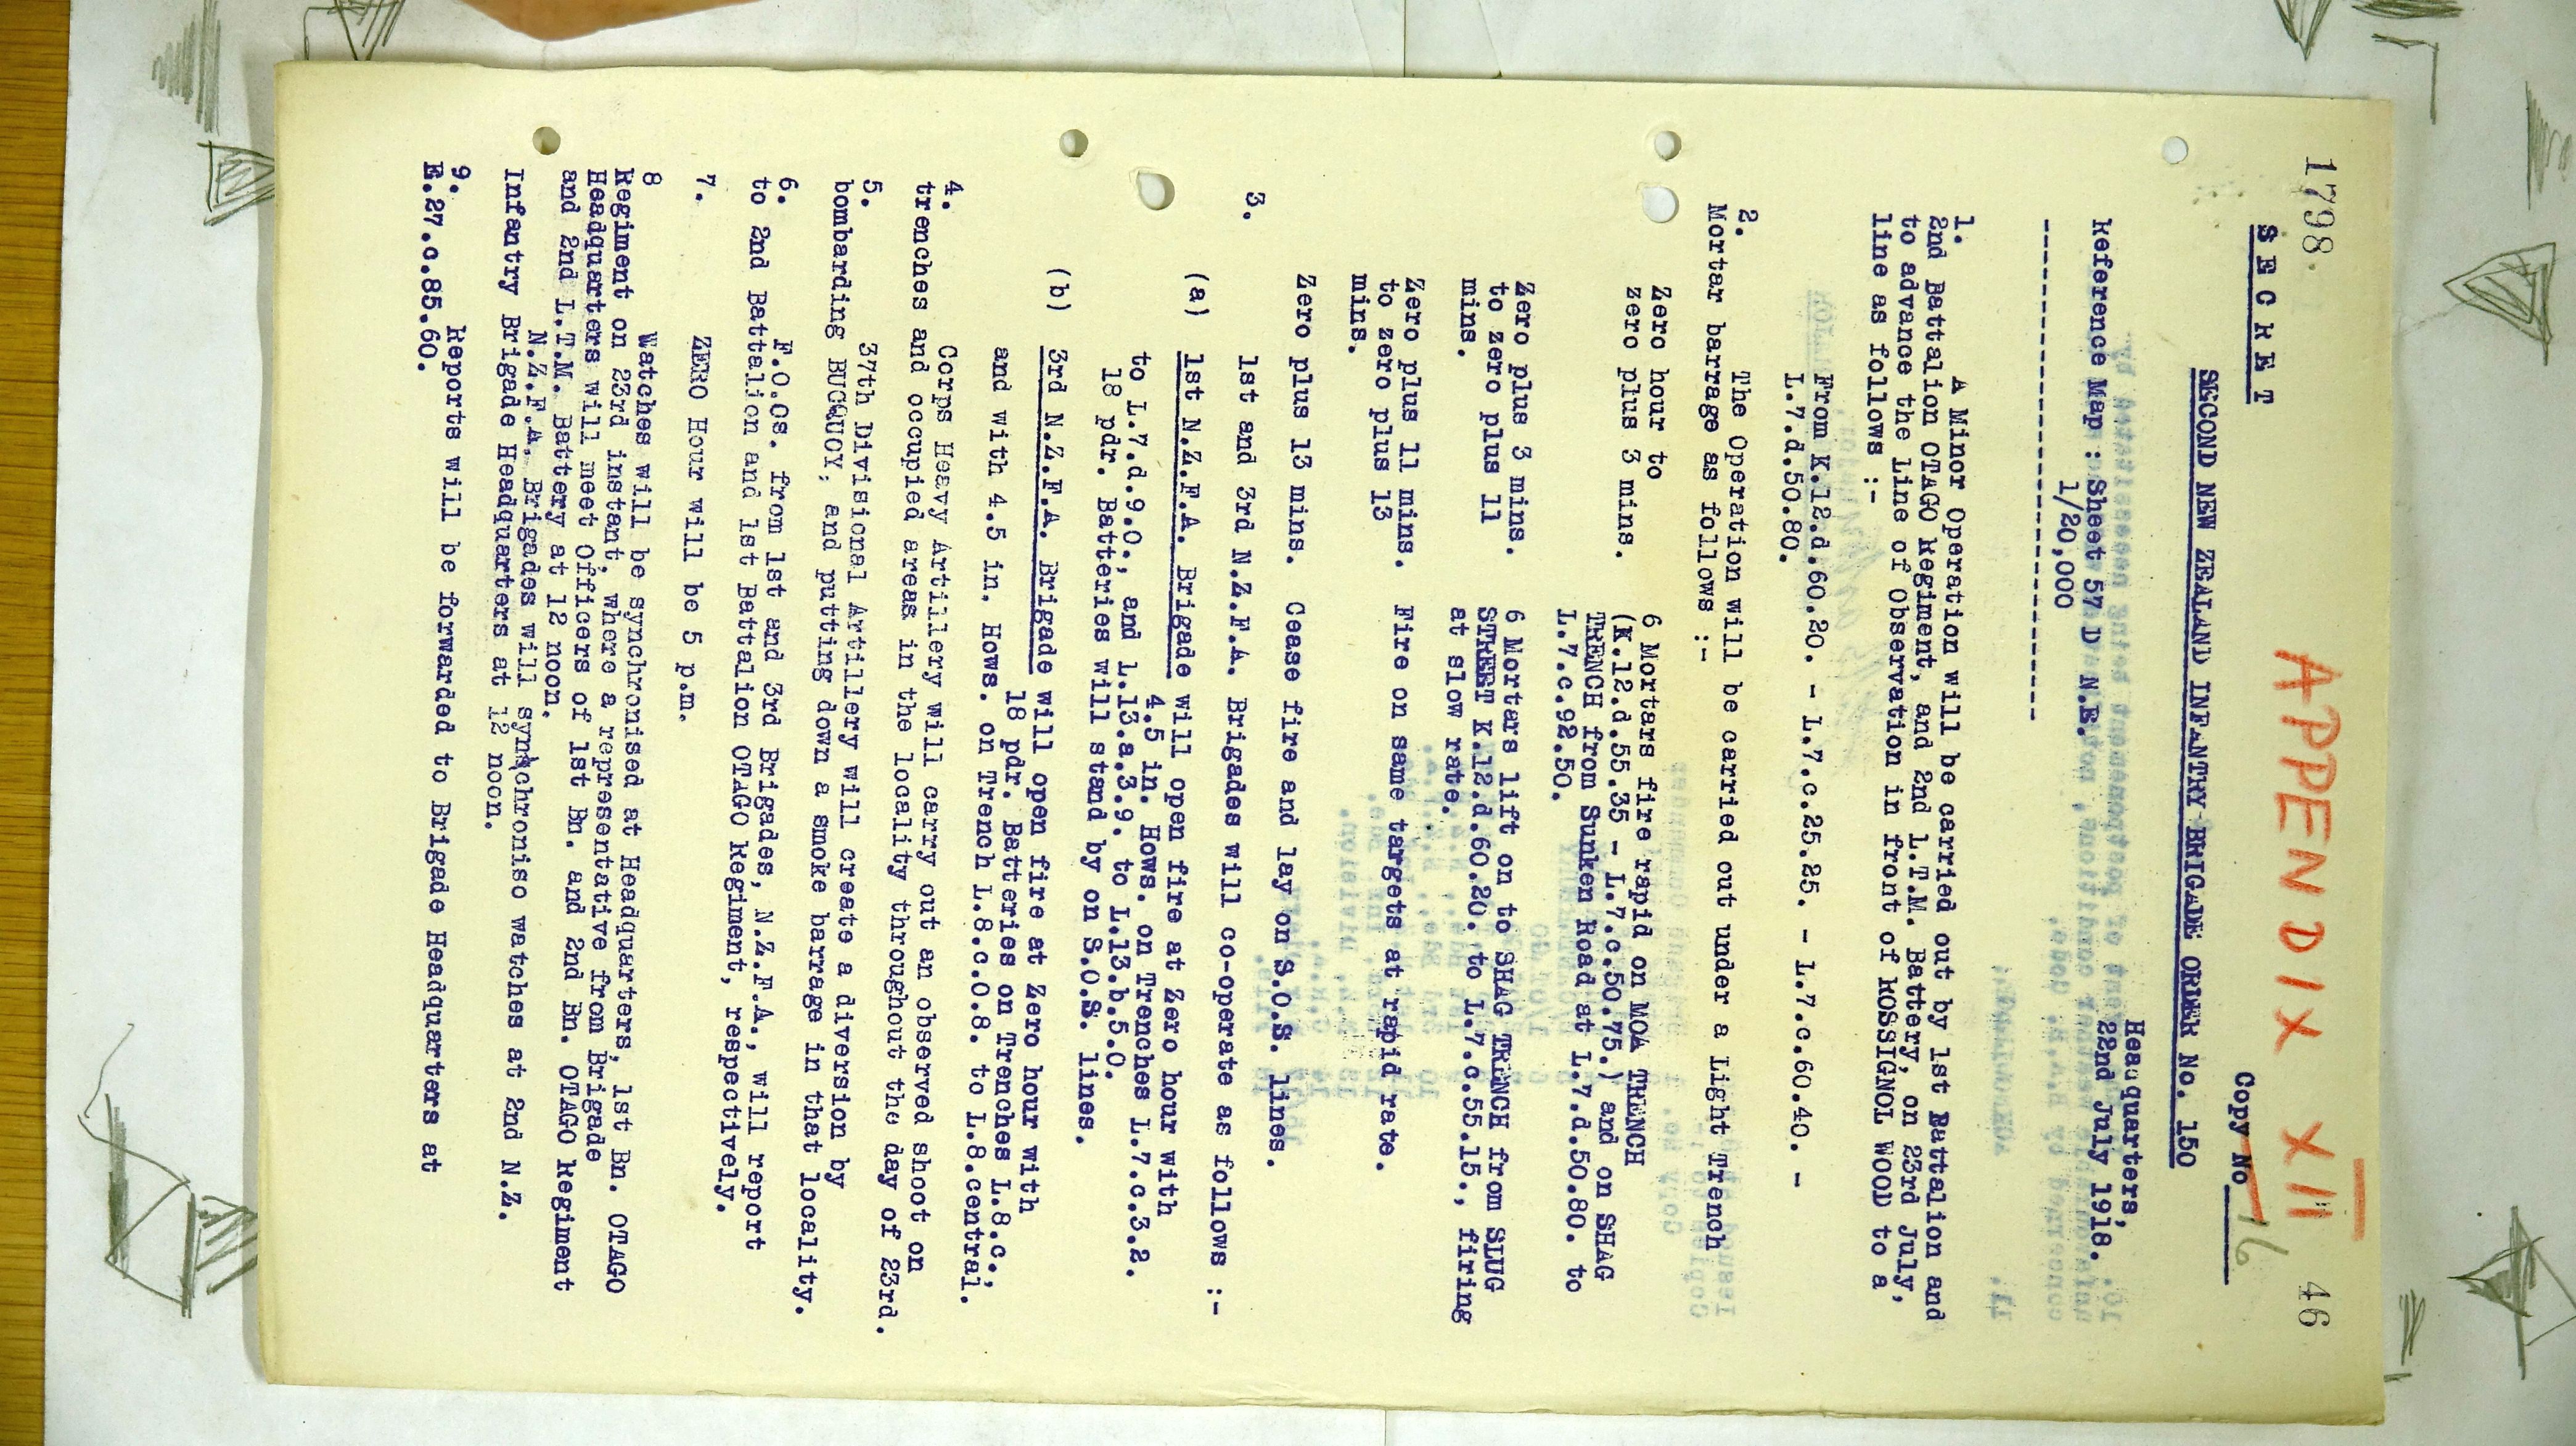 1798.
APPENDIX XII 46
SECRET
Copy No. 16
SECOND NEW ZEALAND INFANTRY BRIGADE ORDER No. 150
Headquarters,
22nd July 1918.
Reference Map : Sheet 57 D N.E.
1/20,000
1. A Minor Operation will be carried out by 1st Battalion and
2nd Battalion OTAGO Regiment, and 2nd L.T.M. Battery, on 23rd July,
to advance the Line of Observation in front of ROSSIGNOL WOOD to a
line as follows :-
From K.12.d.60.20. - L.7.c.25.25. - L.7.c.60.40. -
L.7.d.50.80.
2. The Operation will be carried out under a Light Trench
Mortar barrage as follows :-
Zero hour to
zero plus 3 mins.
6 Mortars fire rapid on MOA TRENCH
(K.12.d.55.35 - L.7.c.50.75.) and on SHAG
TRENCH from Sunken Road at L.7.d.50.80. to
L.7.c.92.50.
Zero plus 3 mins.
to zero plus 11
mins.
6 Mortars lift on to SHAG TRENCH from SLUG
STREET K.12.d.60.20. to L.7.c.55.15., firing
at slow rate.
Zero plus 11 mins.
to zero plus 13
mins.
Fire on same targets at rapid rate.
Zero plus 13 mins. Cease fire and lay on S.O.S. lines.
3. 1st and 3rd N.Z.F.A. Brigades will co-operate as follows :-
(a) 1st N.Z.F.A. Brigade will open fire at Zero hour with
4.5 in. Hows. on Trenches L.7.c.3.2.
to L.7.d.9.0.; and L.13.a.3.9. to L.13.b.5.0.
18 pdr. Batteries will stand by on S.O.S. lines.
(b) 3rd N.Z.F.A. Brigade will open fire at Zero hour with
18 pdr. Batteries on Trenches L.8.c.;
and with 4.5 in. Hows. on Trench L.8.c.0.8. to L.8.central.
4. Corps Heavy Artillery will carry out an observed shoot on
trenches and occupied areas in the locality throughout the day of 23rd.
5. 37th Divisional Artillery will create a diversion by
bombarding BUCQUOY; and putting down a smoke barrage in that locality.
6. F.O.Os. from 1st and 3rd Brigades, N.Z.F.A., will report
to 2nd Battalion and 1st Battalion OTAGO Regiment, respectively.
7. ZERO Hour will be 5 p.m.
8 Watches will be synchronised at Headquarters, 1st Bn. OTAGO
Regiment on 23rd instant, where a representative from Brigade
Headquarters will meet Officers of 1st Bn. and 2nd Bn. OTAGO Regiment
and 2nd L.T.M. Battery at 12 noon.
N.Z.F.A. Brigades will synchroniso watches at 2nd N.Z.
Infantry Brigade Headquarters at 12 noon.
9. Reports will be forwarded to Brigade Headquarters at
E.27.c.85.60.